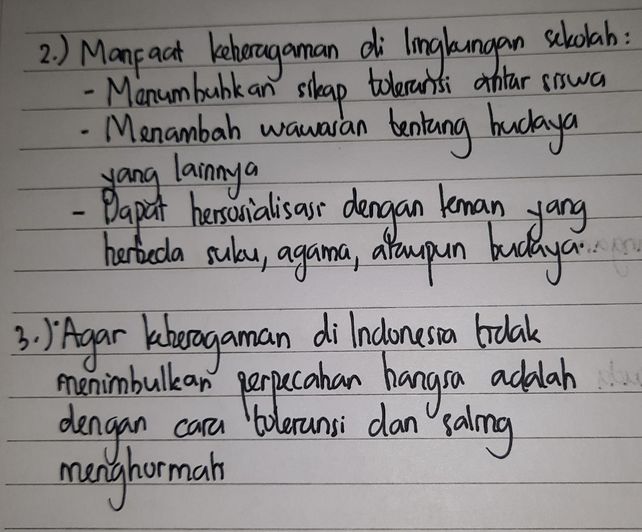 2.) Manfaat keberagaman di lingkungan sekolah :
- Menumbuhkan sikap toleransi antar siswa
- Menambah wawasan tentang budaya
yang lainnya
- Dapat bersosialisasi dengan teman yang
berbeda suku, agama, ataupun budaya.
3.) Agar keberagaman di Indonesia tidak
menimbulkan perpecahan bangsa adalah
dengan cara toleransi dan saling
menghormati